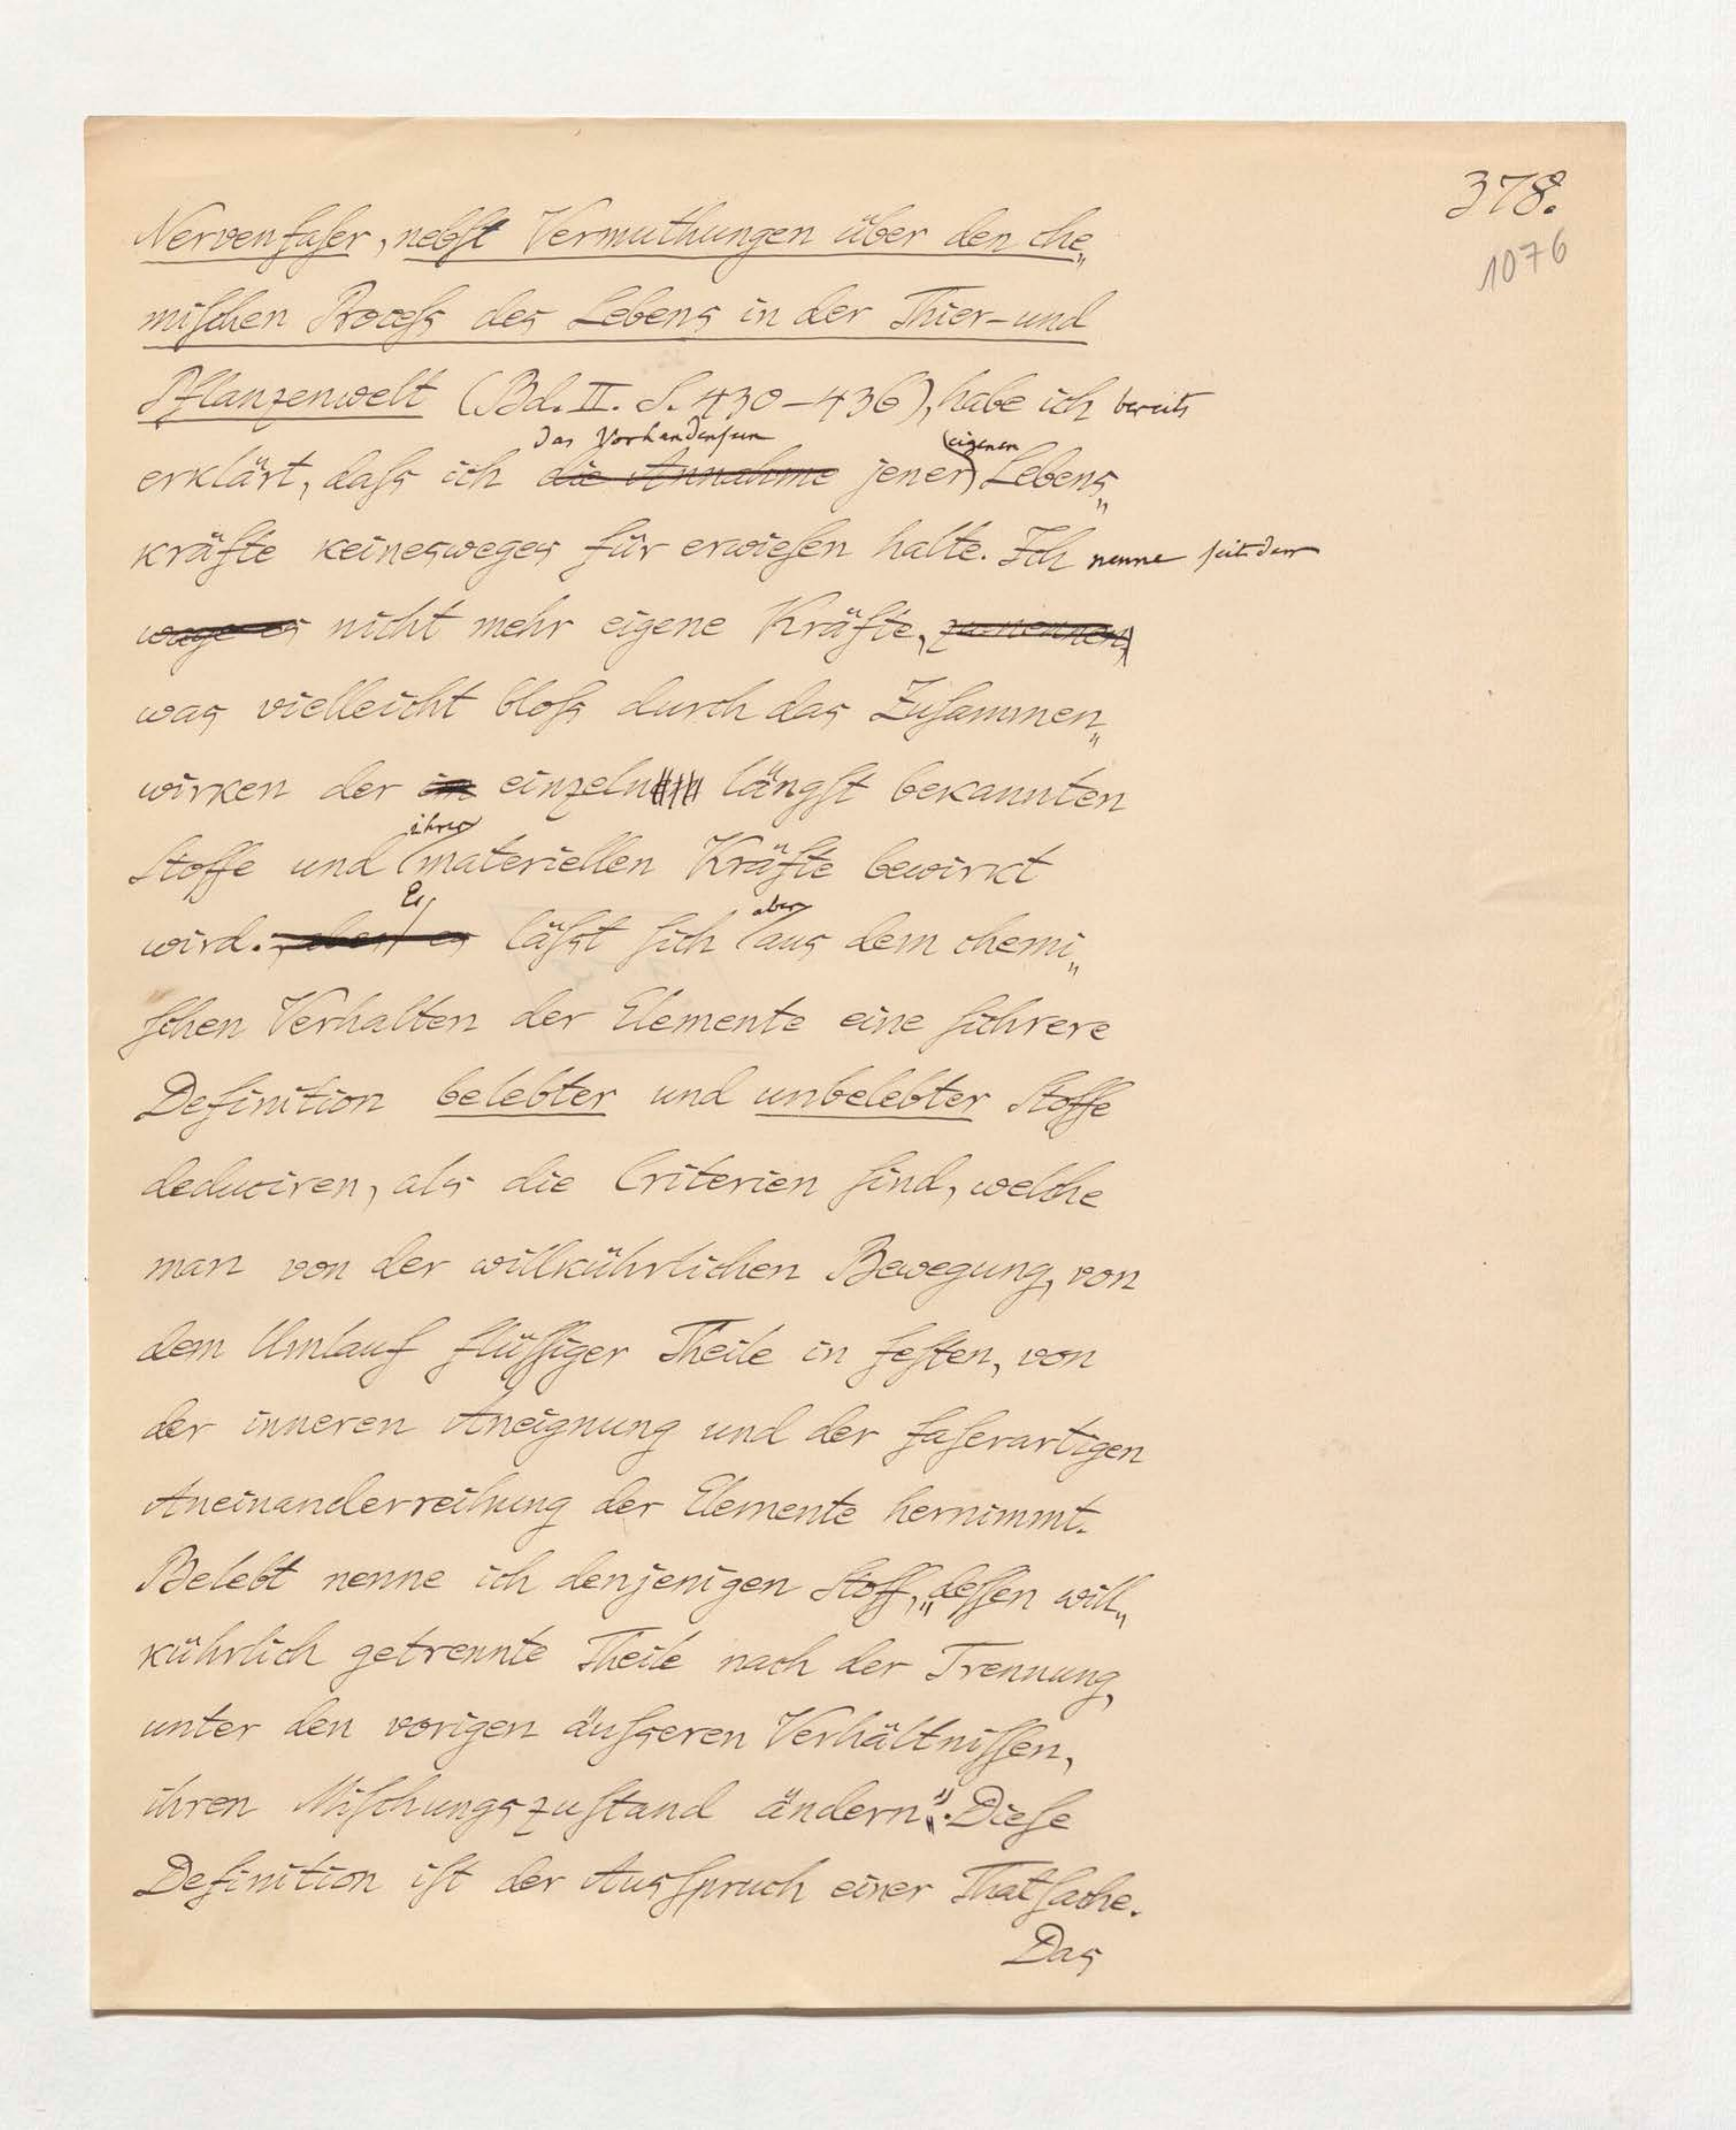 378.
1076
Nervenfaser, nebst Vermuthungen über den che„
mischen Process des Lebens in der Thier-und
Pflanzenwelt (Bd. II. S. 430–436), habe ich bereits
das Vorhandensein eigenen
erklärt, dass ich die Annahme jener Lebens„
kräfte keinesweges für erwiesen halte. Ich nenne seitdem
wage es nicht mehr eigene Kräfte, zu nennen,
was vielleicht bloss durch das Zusammen„
wirken der im einzeln längst bekannten
ihrer
Stoffe und materiellen Kräfte bewirkt
Es aber
wird. aber es lässt sich aus dem chemi„
schen Verhalten der Elemente eine sichrere
Definition belebter und unbelebter Stoffe
deduciren, als die Criterien sind, welche
man von der willkührlichen Bewegung, von
dem Umlauf flüssiger Theile in festen, von
der inneren Aneignung und der faserartigen
Aneinanderreihung der Elemente hernimmt.
Belebt nenne ich denjenigen Stoff, „dessen will„
kührlich getrennte Theile nach der Trennung,
unter den vorigen äusseren Verhältnissen,
ihren Mischungszustand ändern“. Diese
Definition ist der Ausspruch einer Thatsache.
Das